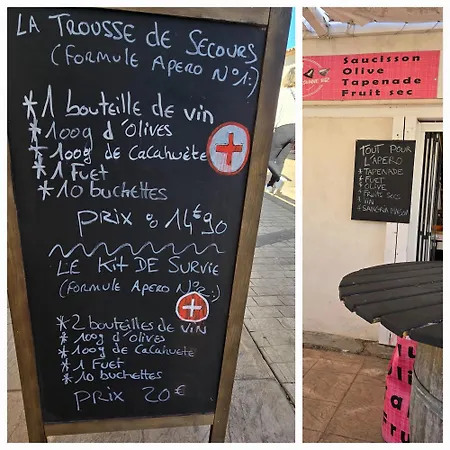 La Trousse de Secours
(Formule Apero N°1:)
* 1 bouteille de vin
* 100g d'olives
* 100g de Cacahuète
* 1 Fuet
* 10 buchettes
Prix : 14€90
Le Kit de Survie
(Formule Apero N°2:)
* 2 bouteilles de vin
* 100g d'olives
* 100g de Cacahuete
* 1 Fuet
* 10 buchettes
Prix 20€
Saucisson
Olive
Tapenade
Fruit sec
Tout pour
l'apero
* Tapenade
* Fuet
* Olive
* Fruits secs
* Vin
* Sangria maison